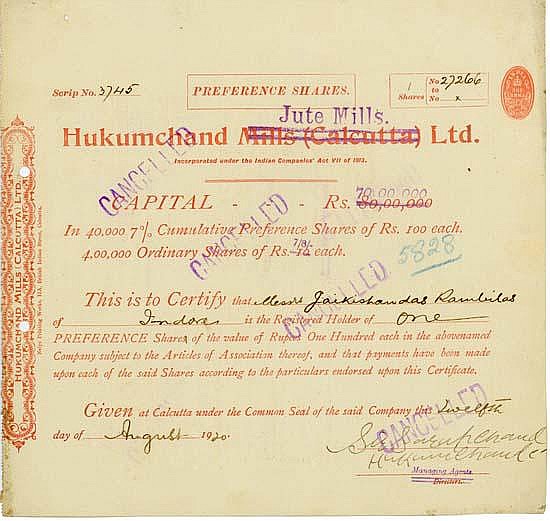 Scrip No. 3745
PREFERENCE SHARES.
1 Shares
No 27266
to
No x
Jute Mills.
Hukumchand Mills (Calcutta) Ltd.
Incorporated under the Indian Companies' Act VII of 1913.
70,00,000
CAPITAL - - Rs. 80,00,000
In 40,000 7% Cumulative Preference Shares of Rs. 100 each.
4,00,000 Ordinary Shares of Rs. 7/8/- 10 each.
5828
This is to Certify that Messrs Jaikishandas Rambilas
of Indore is the Registered Holder of One
PREFERENCE Shares of the value of Rupees One Hundred each in the abovenamed
Company subject to the Articles of Association thereof, and that payments have been made
upon each of the said Shares according to the particulars endorsed upon this Certificate.
Given at Calcutta under the Common Seal of the said Company this twelfth
day of August 1920.
Hukumchand
Managing Agents.
Directors.
CANCELLED
CANCELLED
CANCELLED
CANCELLED
HUKUMCHAND MILLS (CALCUTTA) LTD.